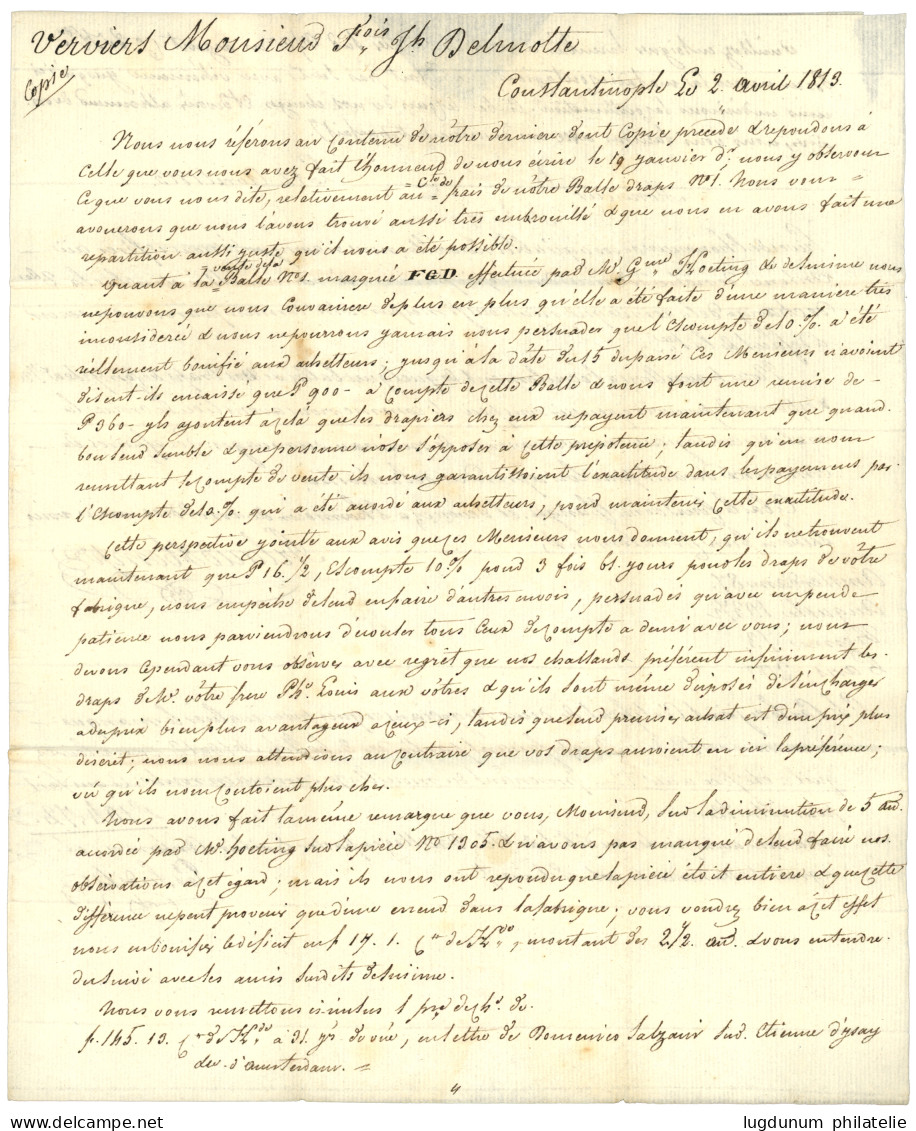 Verviers Monsieur F.ois Jh Delmotte
Copie
Constantinople Le 2. avril 1813.
Nous nous référons au Contenu de nôtre derniere dont Copie precède & repondons à
Celle que vous nous avez fait l'honneur de nous écrire le 19 janvier dr, nous y observons
Ce que vous nous dite, relativement au Cte de frais de nôtre Balle draps No 1. Nous vous =
avouerons que nous l'avons trouvé aussi très embrouillé & que nous en avons fait une
repartition aussi juste qu'il nous a été possible.
Quant à la vente de la Balle No 1. marquée FGD effectuée par Mrs Gme Hoeting & de Smirne nous
ne pouvons que nous Convaincre de plus en plus qu'elle a été faite d'une maniere très
inconsiderée & nous ne pourrons jamais nous persuader que l'Escompte de 10 % a été
réellement bonifié aux achetteurs; jusqu'à la date du 15 du passé Ces Messieurs n'avoient
disent-ils encaissé que P 900 - à Compte de Cette Balle & nous font une remise de -
P 360 - yls ajoutent à celà que les drapiers chez eux ne payent maintenant que quand
bon leur semble & que personne n'ose s'opposer à Cette prepotence; tandis qu'en nous
remettant le Compte de vente ils nous garantissoient l'exactitude dans les payemens par
l'Escompte de 10 %. qui a été accordé aux achetteurs, pour maintenir Cette exactitude.
Cette perspective jointe aux avis que Ces Messieurs nous donnent, qu'ils ne trouvent
maintenant que P 16. 1/2, Escompte 10 % pour 3 fois 61. jours pour les draps de vôtre
fabrique, nous empêche de leur en faire d'autres envois, persuadés qu'avec un peu de
patience nous parviendrons d'écouler tous Ceux de Compte a demi avec vous; nous
devons Cependant vous observer avec regret que nos challands préférent infiniment les
draps de Mr vôtre frere Ph. Louis aux vôtres & qu'ils sont même disposés de s'en charger
a du prix bien plus avantageux à Ceux-ci, tandis que leur premier achat est d'un prix plus
discret; nous nous attendions au Contraire que vos draps auroient eu ici la préférence;
vû qu'ils nous coutoient plus cher.
Nous avons fait la même remarque que vous, Monsieur, sur la diminution de 5 au.
accordée par Mrs hoeting sur la pièce No 1305. & n'avons pas manqué de leur faire nos
observations à Cet égard; mais ils nous ont repondu que la pièce étoit entiere & que Cette
différence ne peut provenir que d'une erreur dans la fabrique; vous voudrez bien à cet effet
nous en bonifier le déficit en f 17. 1. montant des 2 1/2 au. & vous entendre
du suivi avec les amis susdits de Smirne.
Nous vous remettons ci-inclus 1 pre de Ch. de
f. 145. 13. à 31. jrs de vüe, en lettre de Domenico Salzani sur Etienne d'ysay
d'amsterdam. =
4
lugdunum philatelie